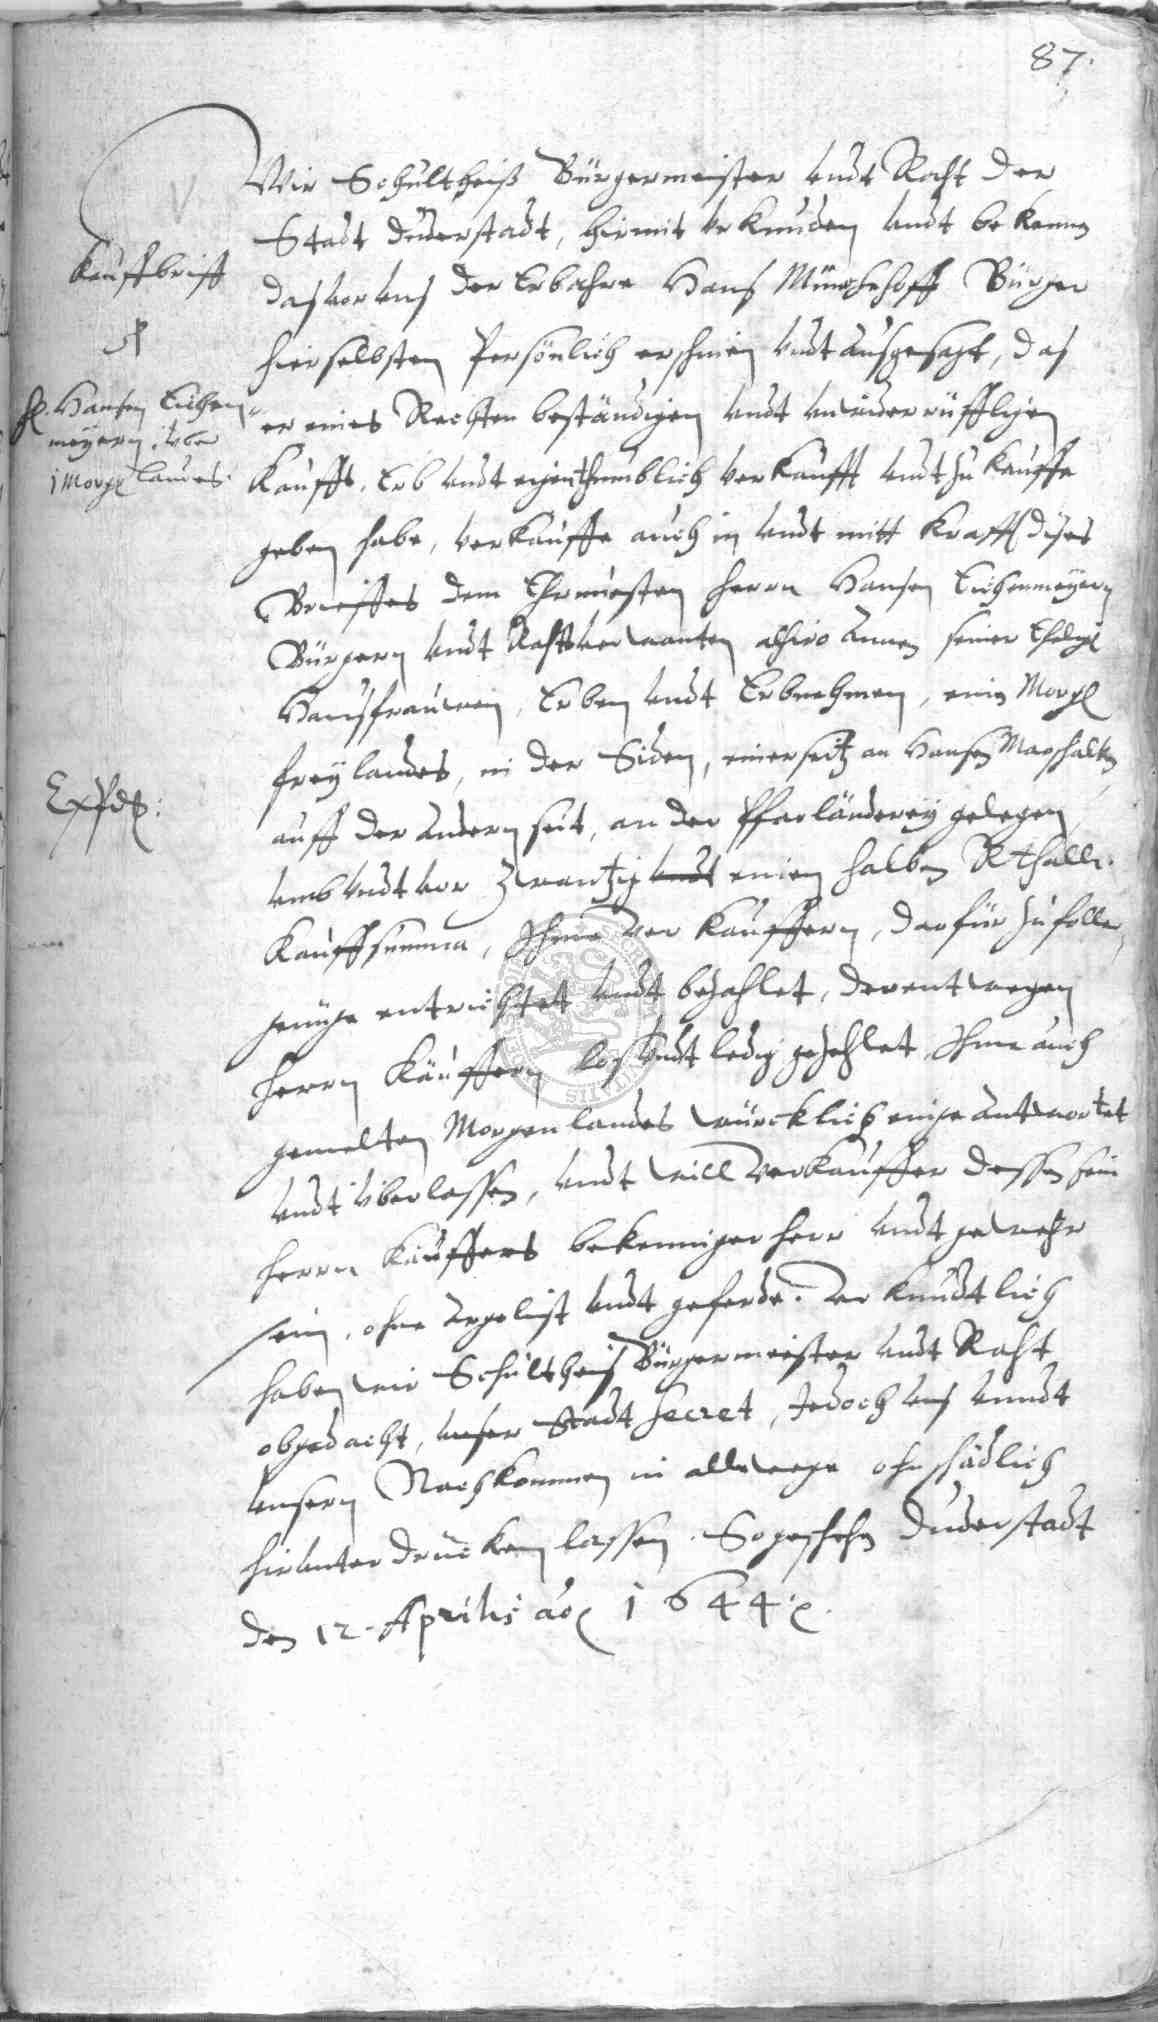 87.
Wir Schultheiß Bürgermeister undt Raht der
Stadt Duderstadt, hirmit urkunden undt bekennen
Kauffbrieff
das vor uns der Erbahre Hans Münchehoff Bürger
hierselbsten Persönlich erschienen undt außgesagt, das
H. Hansen Eichen-
meyern uber
1 Morg. landes.
er eines Rechten beständigen undt unwiderrüfflichen
Kauffs, Erb undt eigenthumblich verkaufft undt zu kauffe
geben habe, verkauffe auch in undt mitt Krafft dises
Brieffes dem Ehrnuesten herrn Hansen Eichenmeyern
Bürgern undt Rahtsverwanten alhiro Annen seiner Ehelig.
Hausfrauwen, Erben undt Erbnehmen, einen Morg.
frey landes, in der Siden, einerseitz an Hansen Marschalken
Expdt:
auff der andern seit, an der Pfarländerey gelegen,
umb undt vor zwantzig undt einen halben Rthall.
Kauffsumma, Ihme Verkauffern, darfür zu foller
genüge entrichtet undt bezahlet, derentwegen
herrn Käuffern los undt ledig gezehlet Ihme auch
gemelten Morgen landes würcklich eingeantwortet
undt überlassen, undt will Verkauffer dessen sein
herrn Käuffers bekenniger herr undt gewehr
sein, ohne argelist undt geferde. Urkundtlich
haben wir Schultheis Bürgermeister undt Raht
obgedacht, unser Stadt Secret, Jedoch uns unndt
unsern Nachkommen in allewege ohnschädlich
hirunter drucken lassen. So geschehen Duderstadt
den 12. Aprilis ao 1644.